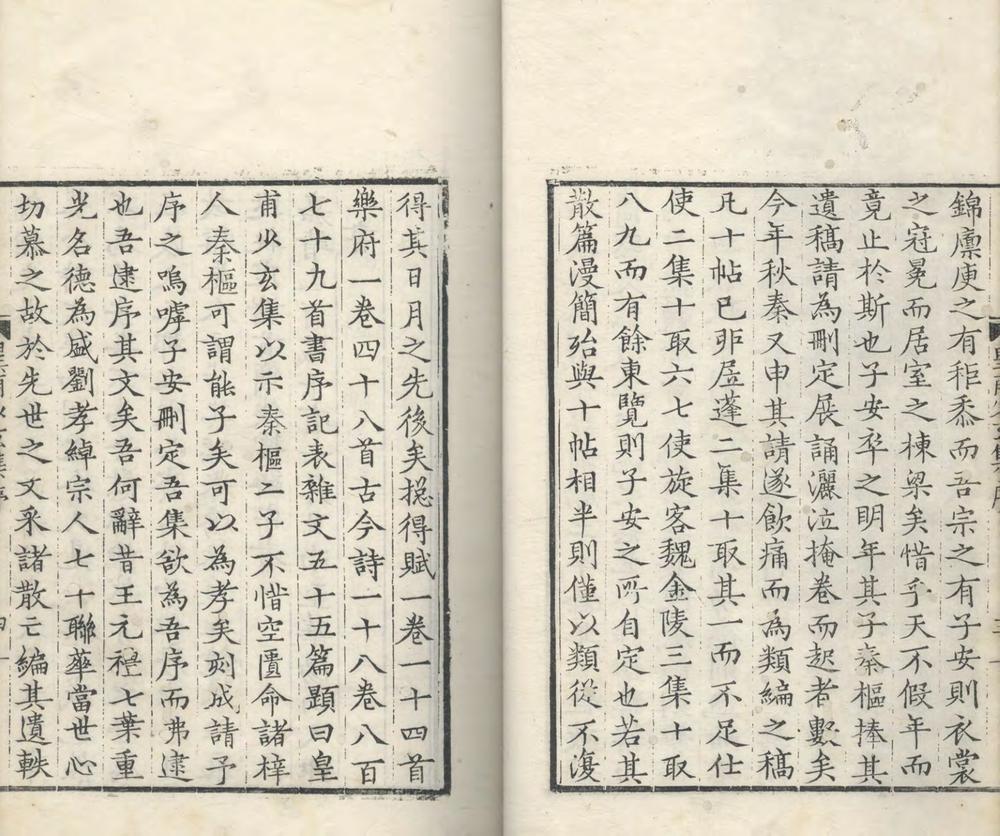 錦廩庾之有秬黍而吾宗之有子安則衣裳
之㓂冕而居室之棟梁矣惜乎天不假年而
竟止於斯也子安卒之明年其子秦樞捧其
遺稿請為刪定展誦灑泣掩卷而起者數矣
今年秋秦又申其請遂飲痛而為類編之稿
凡十帖已丣㞐蓬二集十取其一而不足仕
使二集十取六七使旋客魏金陵三集十取
八九而有餘東覽則子安之所自定也若其
散篇漫簡殆與十帖相半則僅以類從不復
得其日月之先後矣揔得賦一卷一十四首
樂府一卷四十八首古今詩一十八卷八百
七十九首書序記表雜文五十五篇題曰皇
甫少玄集以示秦樞二子不惜空匱命諸梓
人秦樞可謂能子矣可以為孝矣刻成請予
序之嗚嘑子安刪定吾集欲為吾序而弗逮
也吾逮序其文矣吾何辭昔王元禮七葉重
光名德為盛劉孝綽宗人七十聯華當世心
切慕之故於先世之文采諸散亡編其遺軼